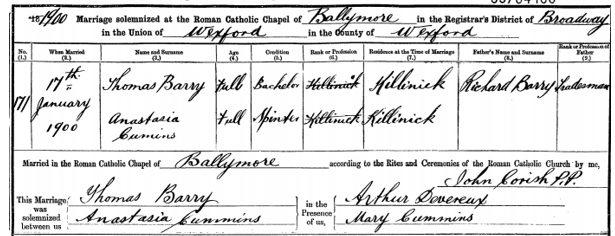 1900 Marriage solemnized at the Roman Catholic Chapel of Ballymore in the Registrar's District of Broadway
in the Union of Wexford in the County of Wexford
No. (1.) When Married (2.) Name and Surname (3.) Age (4.) Condition (5.) Rank or Profession (6.) Residence at the Time of Marriage (7.) Father's Name and Surname (8.) Rank or Profession of Father (9.)
171 17th January 1900 Thomas Barry Full Bachelor Killinick Killinick Richard Barry Tradesman
Anastasia Cumins Full Spinster Killinick Killinick
Married in the Roman Catholic Chapel of Ballymore according to the Rites and Ceremonies of the Roman Catholic Church by me,
John Corish P.P.
This Marriage was solemnized between us Thomas Barry
Anastasia Cummins
in the Presence of us, Arthur Devereux
Mary Cummins